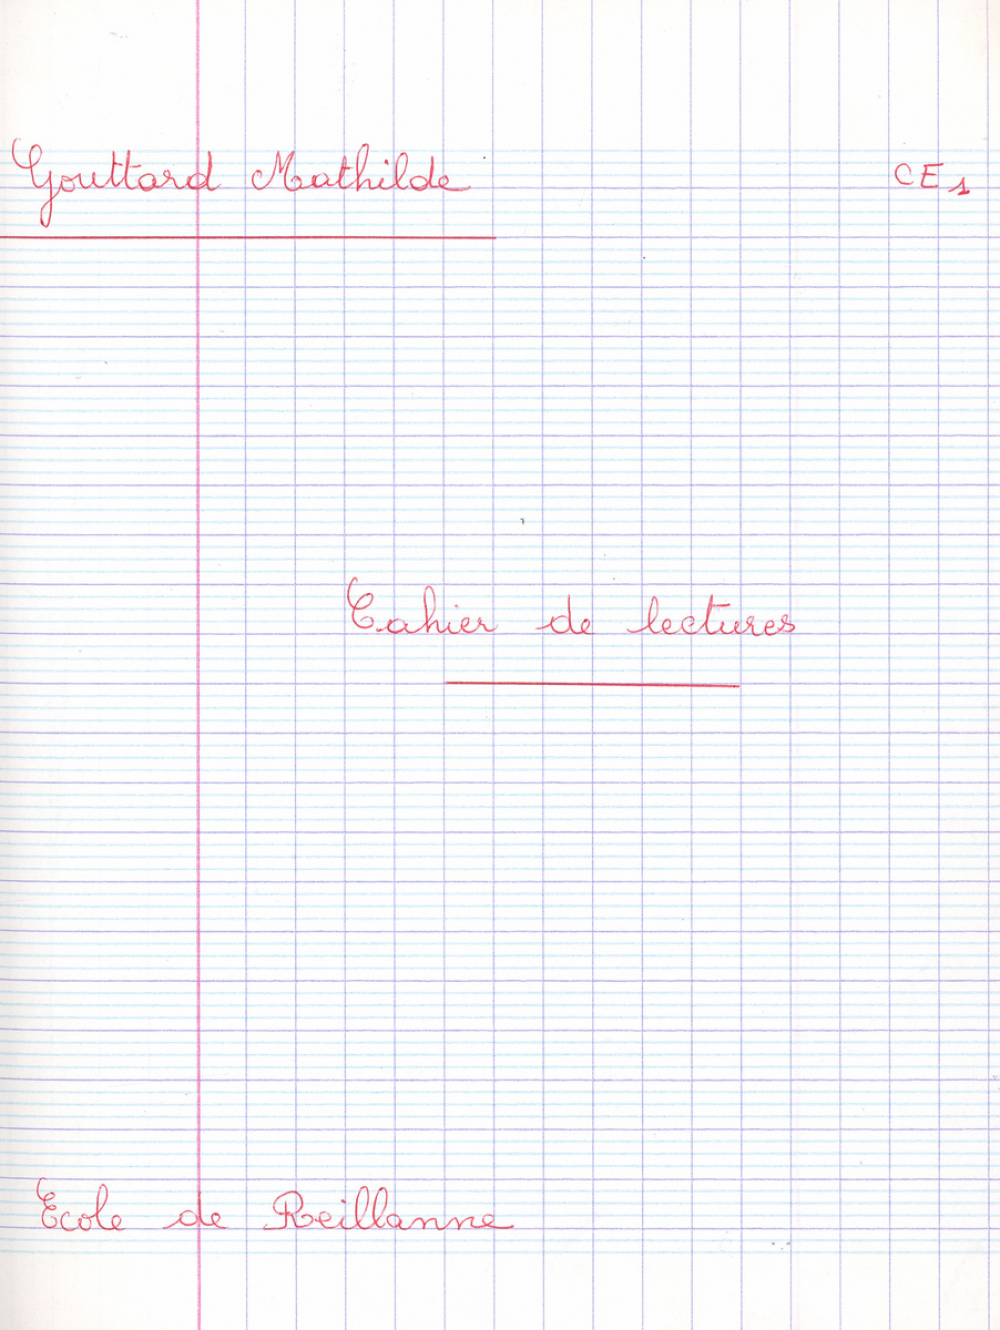 Gouttard Mathilde CE1
Cahier de lectures
Ecole de Reillanne